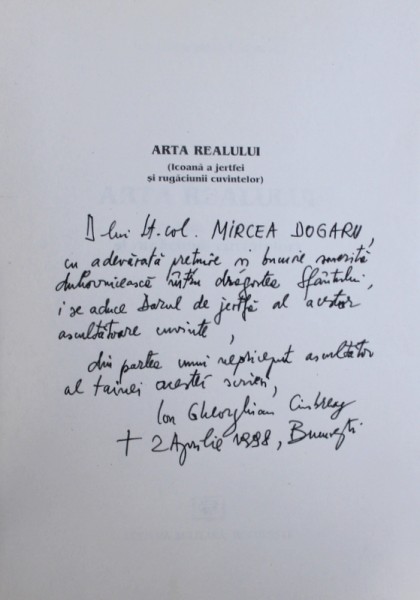 ARTA REALULUI
(Icoană a jertfei
și rugăciunii cuvintelor)
D lui Lt. col. MIRCEA DOGARU,
cu adevărată prețuire și bucurie smerită
duhovnicească întru dragostea Sfântului,
i se aduce Darul de jertfă al acestor
ascultătoare cuvinte,
din partea unui nepriceput ascultător
al tainei acestei scrieri,
Ion Gheorghian
† 2 Aprilie 1998, București